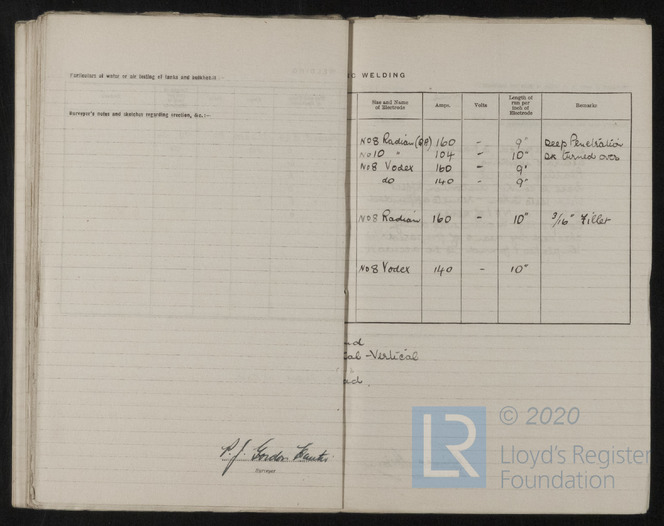 Particulars of water or air testing of tanks and bulkheads:—
Surveyor's notes and sketches regarding erection, &c.:—
P. J. Gordon
Surveyor
IC WELDING
Size and Name of Electrode Amps. Volts Length of run per inch of Electrode Remarks
No 8 Radian 160 - 9" Deep Penetration
No 10 " 104 - 10" turned over
No 8 Vodex 160 - 9"
do 140 - 9"
No 8 Radian 160 - 10" 3/16" Fillet
No 8 Vodex 140 - 10"
cal - Vertical
LR
© 2020
Lloyd's Register
Foundation